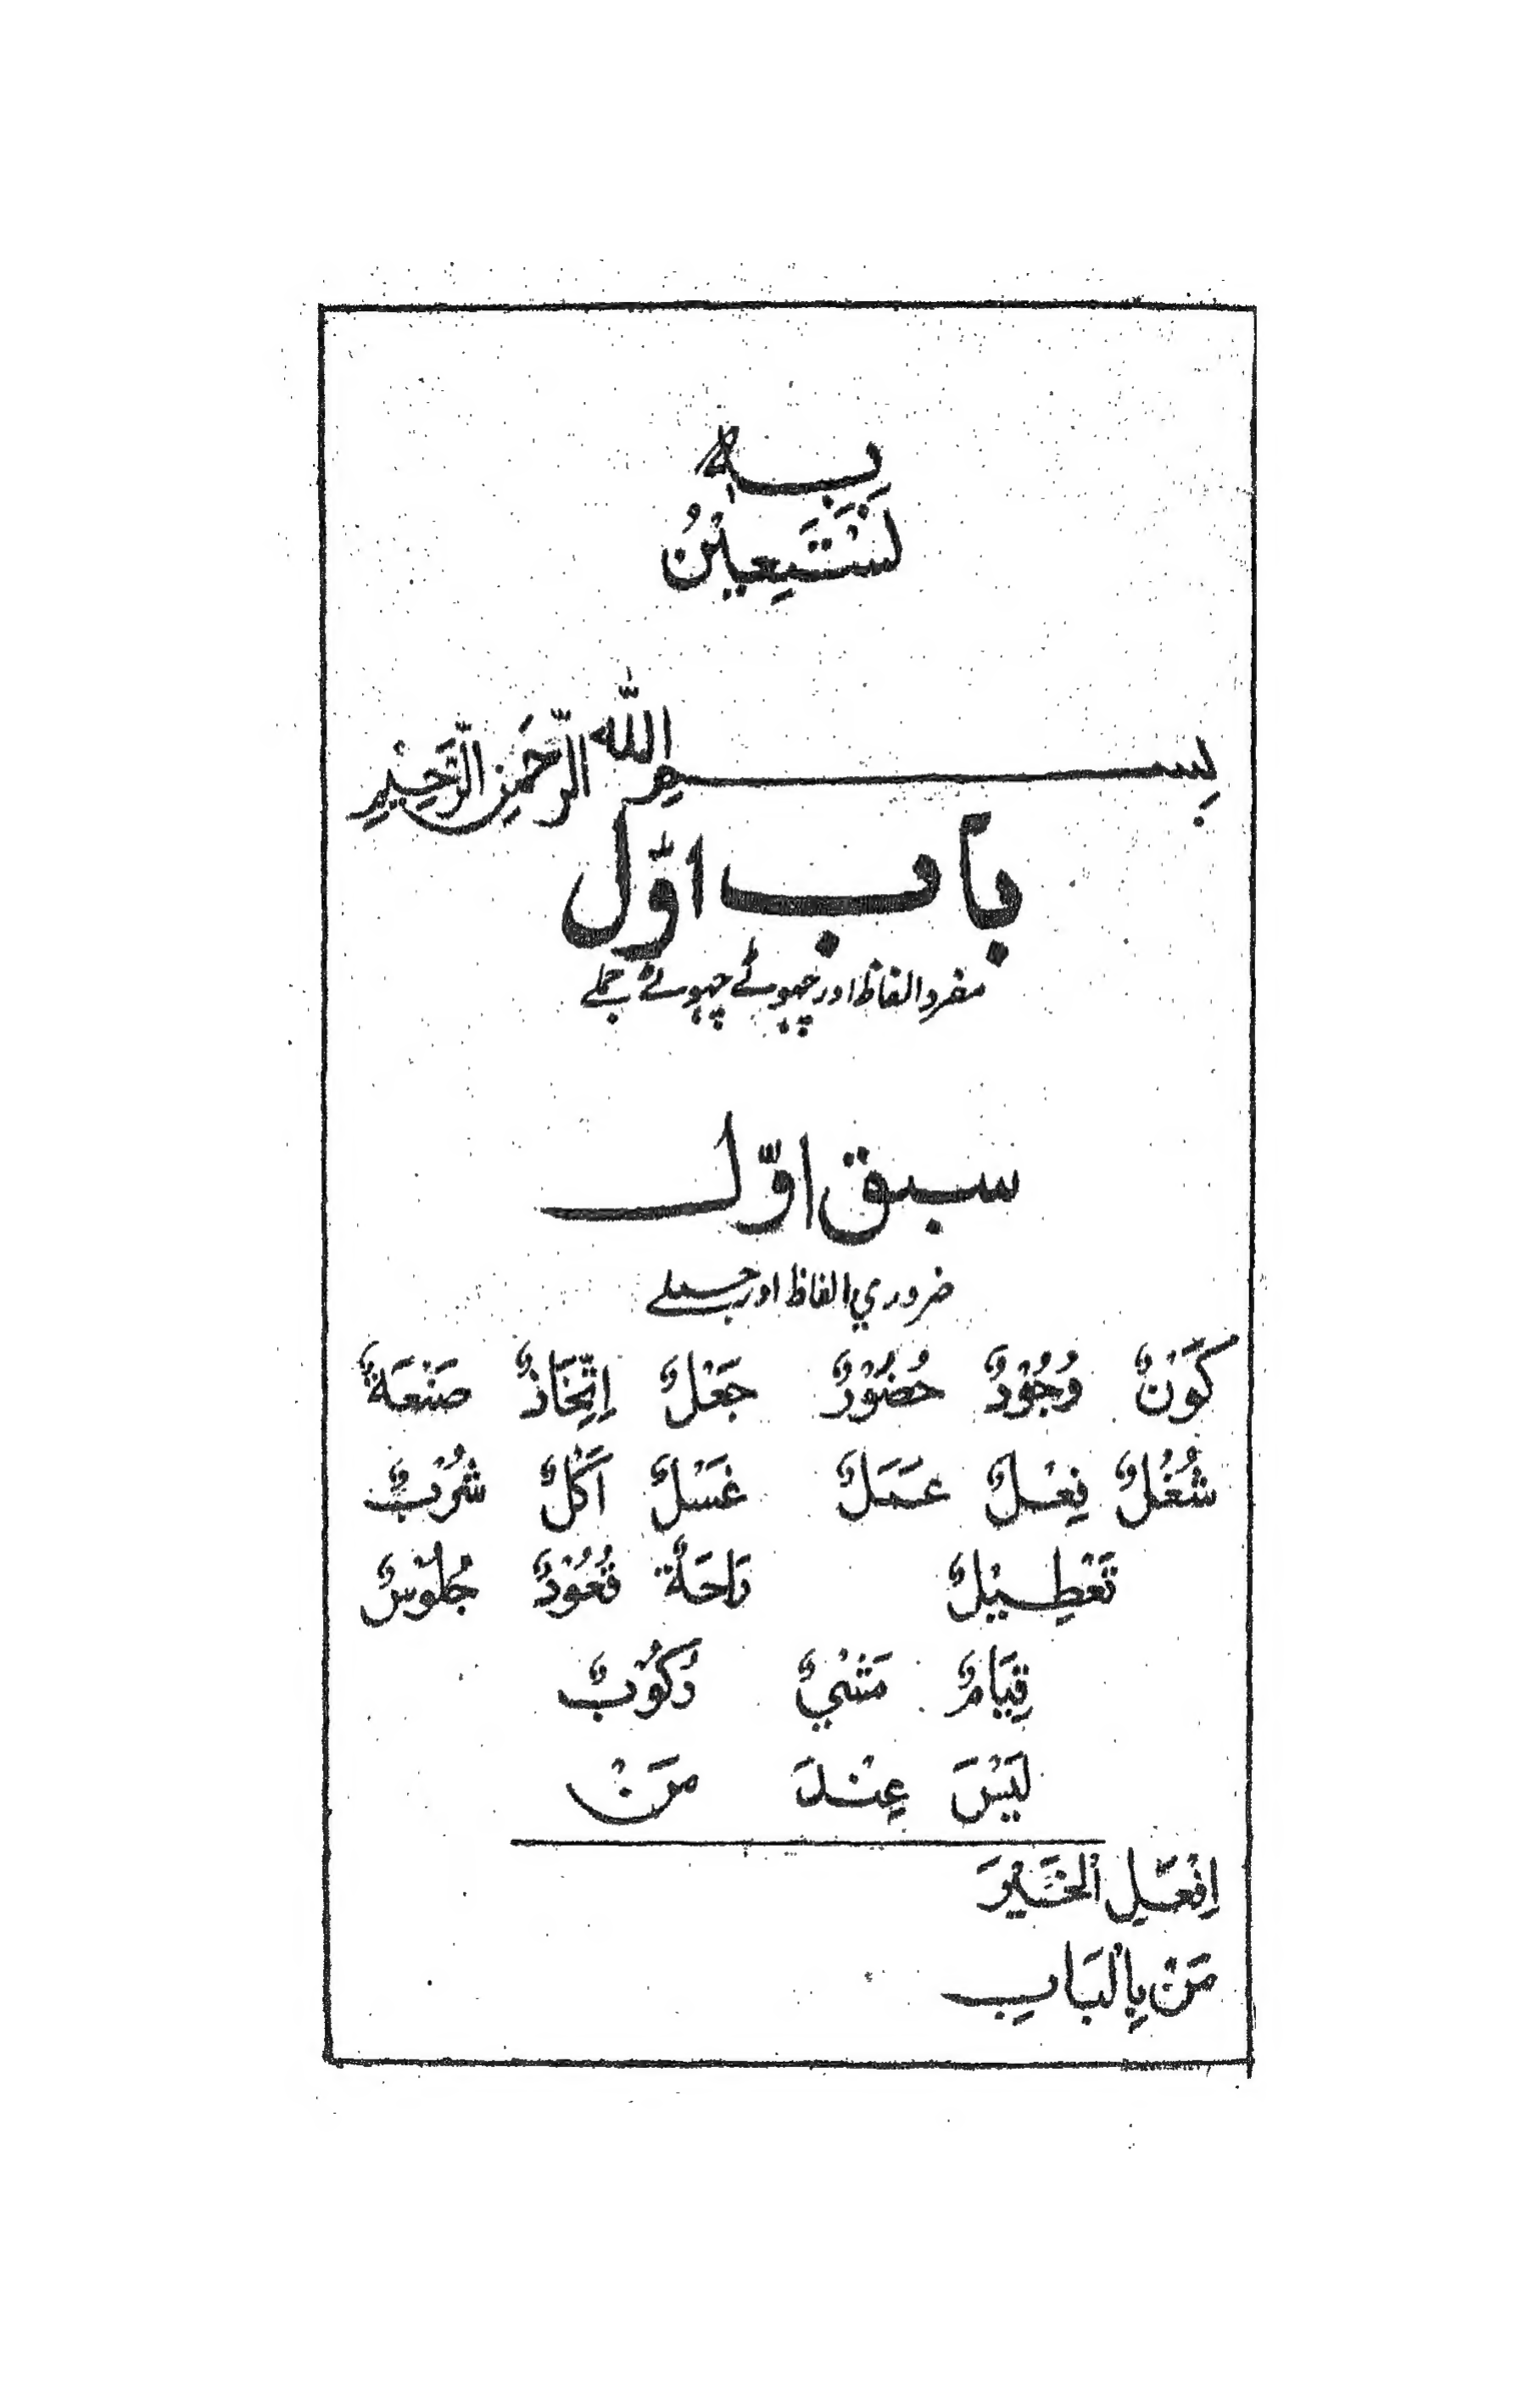 بِهٖ
نَسْتَعِیْنُ
بِسْمِ اللّٰهِ الرَّحْمٰنِ الرَّحِیْمِ
باب اوّل
مفرد الفاظ اور چھوٹے چھوٹے جملے
سبق اوّل
ضروري الفاظ اور جملے
كَوْنٌ وُجُوْدٌ حُضُوْرٌ جَعْلٌ اِتِّخَاذٌ صَنْعَةٌ
شُغْلٌ فِعْلٌ عَمَلٌ غَسْلٌ اَكْلٌ شُرْبٌ
تَعْطِيْلٌ رَاحَةٌ قُعُوْدٌ جُلُوْسٌ
قِيَامٌ مَشْيٌ رُكُوْبٌ
لَيْسَ عِنْدَ مَنْ
اِفْعَلِ الْخَيْرَ
مَنْ بِالْبَابِ